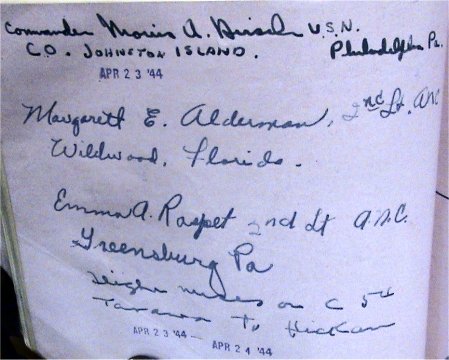 Commander Morris A. Hirsch U.S.N.
C.O. JOHNSTON ISLAND. Philadelphia Pa.
APR 23 '44
Margarett E. Alderman, 2nd Lt. ANC
Wildwood, Florida.
Emma A. Raspet 2nd Lt A.N.C.
Greensburg Pa
Flight nurses on C 54
Tarawa To Hickam
APR 23 '44 — APR 24 '44